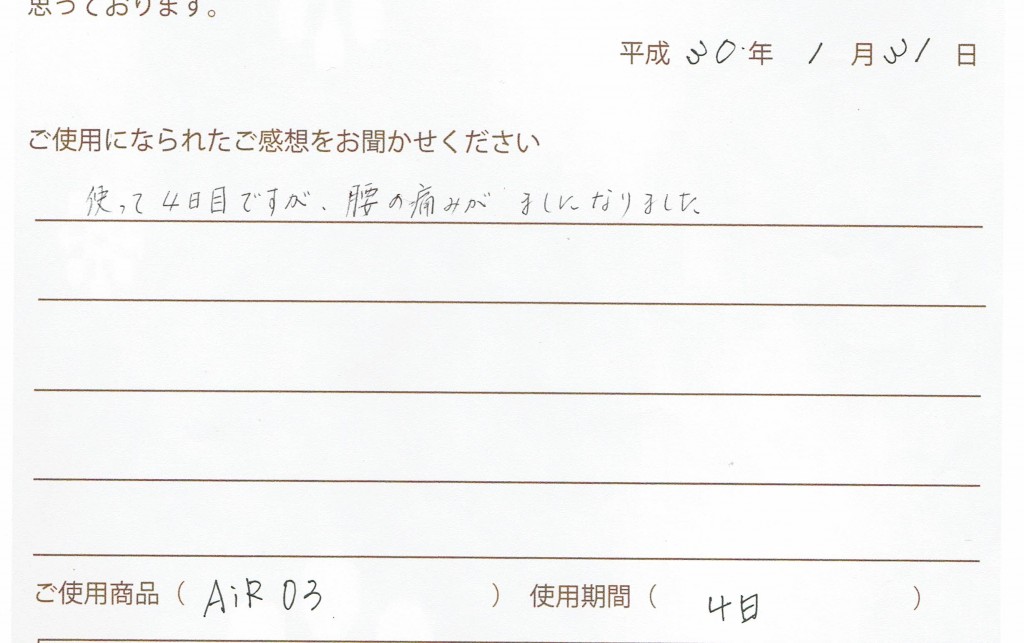 思っております。
平成 30年 1月31日
ご使用になられたご感想をお聞かせください
使って4日目ですが、腰の痛みが ましになりました
ご使用商品（ AiR 03 ） 使用期間（ 4日 ）